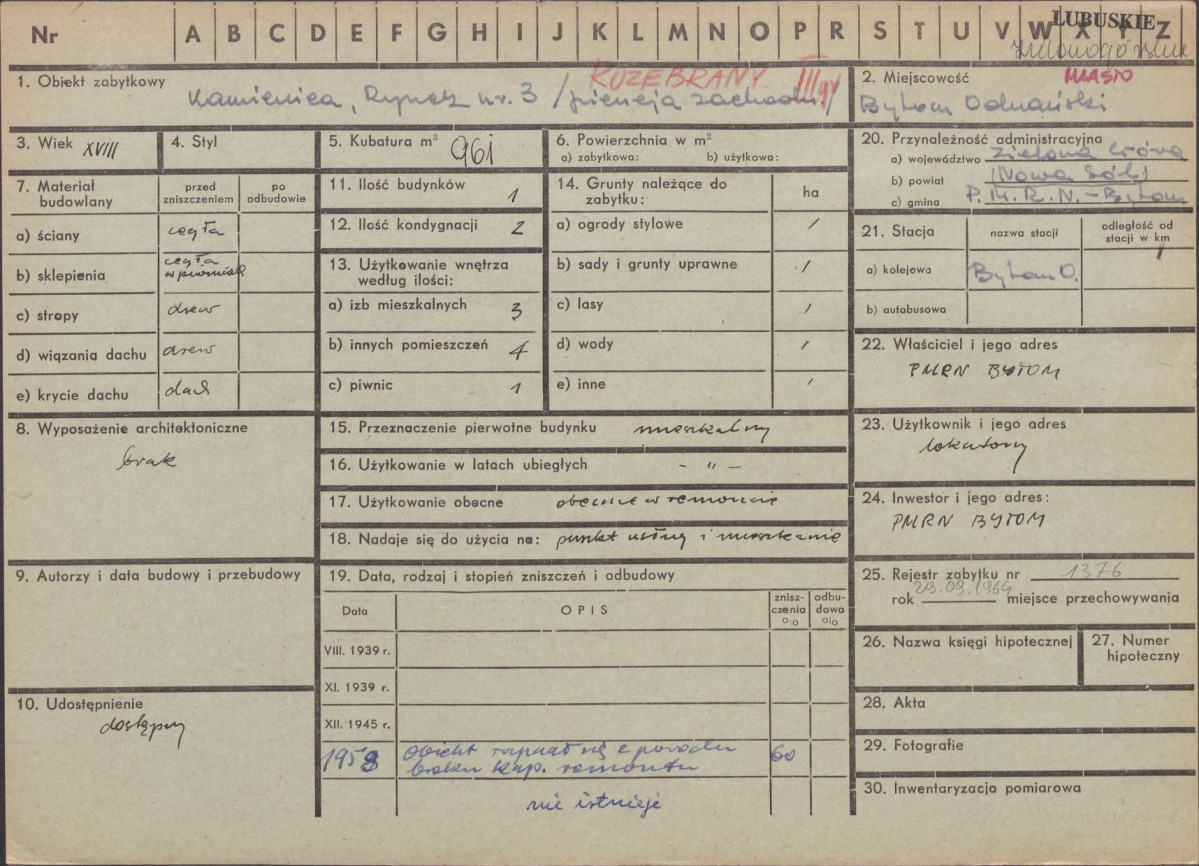 Nr A B C D E F G H I J K L M N O P R S T U V W X Y Z
LUBUSKIE
Zielonogórskie
1. Obiekt zabytkowy
ROZEBRANY III gr
Kamienica, Rynek nr. 3 /pierzeja zachodn./
2. Miejscowość MIASTO
Bytom Odrzański
3. Wiek XVIII
4. Styl
5. Kubatura m³ 961
6. Powierzchnia w m²
a) zabytkowa: b) użytkowa:
20. Przynależność administracyjna
a) województwo Zielona Góra
b) powiat (Nowa Sól)
c) gmina P.M.R.N. - Bytom
7. Materiał budowlany
przed zniszczeniem
po odbudowie
a) ściany cegła
b) sklepienia cegła w piwnicach
c) stropy drew
d) wiązania dachu drew
e) krycie dachu dach
11. Ilość budynków 1
12. Ilość kondygnacji 2
13. Użytkowanie wnętrza według ilości:
a) izb mieszkalnych 3
b) innych pomieszczeń 4
c) piwnic 1
14. Grunty należące do zabytku: ha
a) ogrody stylowe /
b) sady i grunty uprawne /
c) lasy /
d) wody /
e) inne /
21. Stacja
nazwa stacji
odległość od stacji w km
a) kolejowa Bytom O. 1
b) autobusowa
22. Właściciel i jego adres
PMRN BYTOM
8. Wyposażenie architektoniczne
brak
15. Przeznaczenie pierwotne budynku mieszkalny
16. Użytkowanie w latach ubiegłych - " -
17. Użytkowanie obecne obecnie w remoncie
18. Nadaje się do użycia na: punkt usług i mieszkanie
23. Użytkownik i jego adres
lokatorzy
24. Inwestor i jego adres:
PMRN BYTOM
9. Autorzy i data budowy i przebudowy
19. Data, rodzaj i stopień zniszczeń i odbudowy
Data OPIS zniszczenia o/o odbudowa o/o
VIII. 1939 r.
XI. 1939 r.
XII. 1945 r.
1958 obiekt rozpadł się z powodu 60
braku kap. remontu
nie istnieje
25. Rejestr zabytku nr 1376
rok 28.09.1964 miejsce przechowywania
26. Nazwa księgi hipotecznej
27. Numer hipoteczny
10. Udostępnienie
dostępny
28. Akta
29. Fotografie
30. Inwentaryzacja pomiarowa